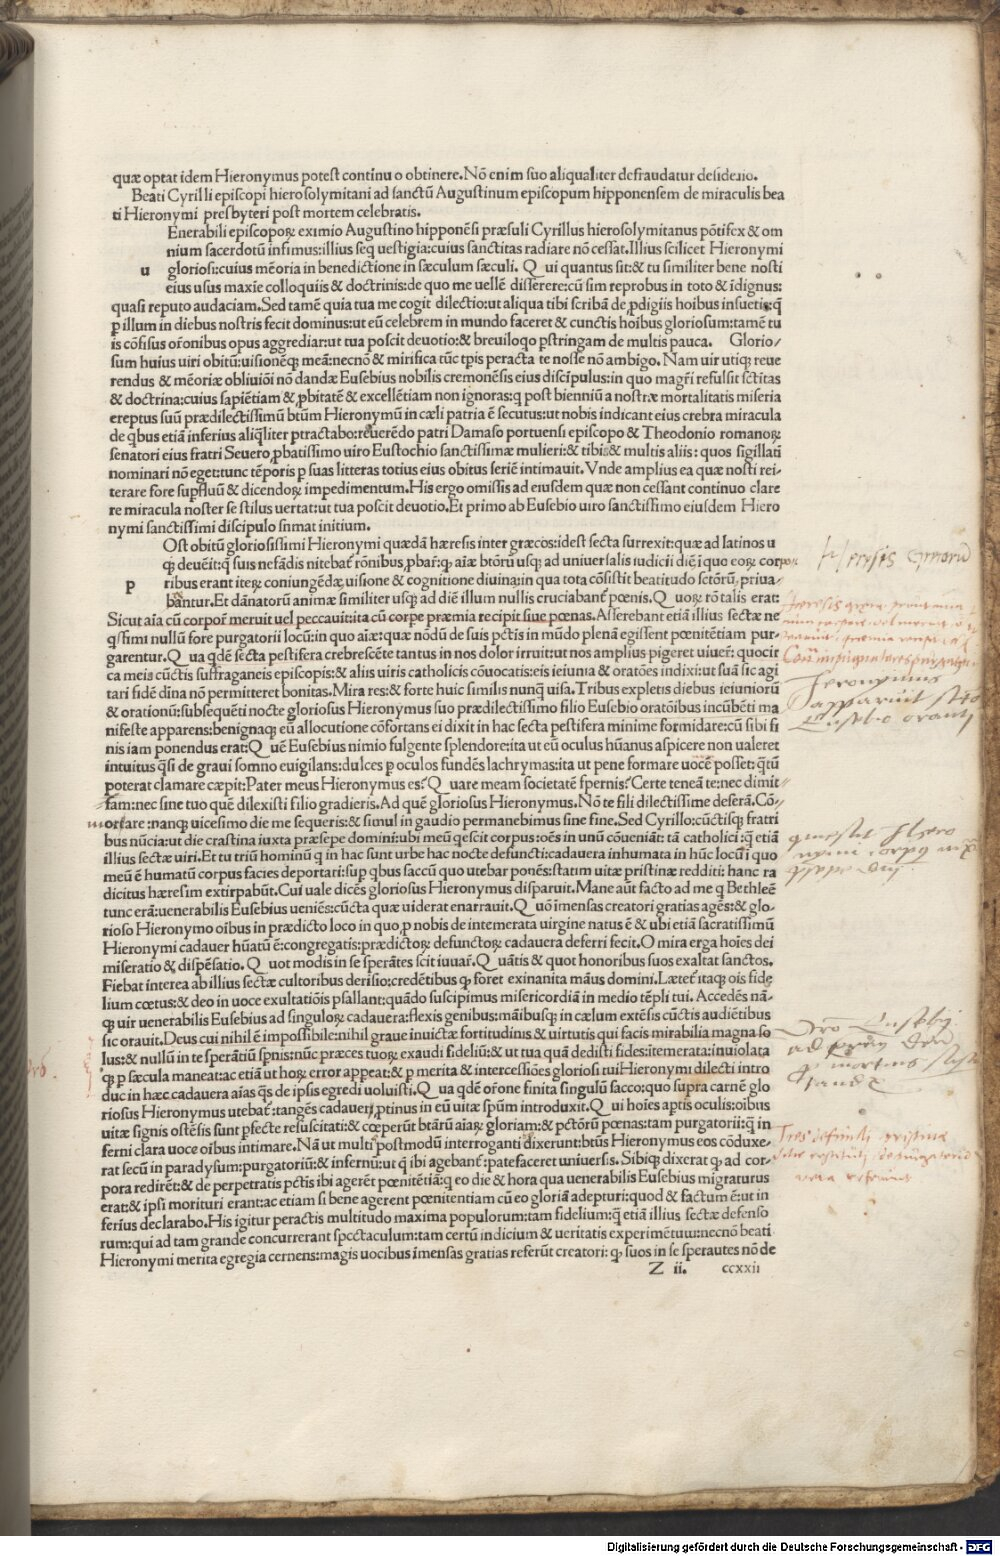 quæ optat idem Hieronymus potest continuo obtinere. Nō enim suo aliqualiter defraudatur desiderio.
Beati Cyrilli episcopi hierosolymitani ad sanctū Augustinum episcopum hipponensem de miraculis bea
ti Hieronymi presbyteri post mortem celebratis.
Enerabili episcoporꝝ eximio Augustino hipponēsi præsuli Cyrillus hierosolymitanus pōtifex & om
nium sacerdotū infimus: illius seq̄ uestigia: cuius sanctitas radiare nō cessat. Illius scilicet Hieronymi
u gloriosi: cuius mēoria in benedictione in sæculum sæculi. Qui quantus sit: & tu similiter bene nosti
eius usus maxīe colloquiis & doctrinis: de quo me uellē disserere: cū sim reprobus in toto & īdignus:
quasi reputo audaciam. Sed tamē quia tua me cogit dilectio: ut aliqua tibi scribā de ꝓdigiis hoibus insuetis: q̄
ꝑ illum in diebus nostris fecit dominus: ut eū celebrem in mundo faceret & cunctis hoibus gloriosum: tamē tu
is cōfisus or̄onibus opus aggrediar: ut tua poscit deuotio: & breuiloqo ꝑstringam de multis pauca. Glorio/
sum huius uiri obitū: uisionēq; meā: necnō & mirifica tūc tp̄is peracta te nosse nō ambigo. Nam uir utiq; reue
rendus & mēoriæ obliuiōi nō dandæ Eusebius nobilis cremonēsis eius discipulus: in quo magr̄i refulsit sc̄titas
& doctrina: cuius sapiētiam & ꝓbitatē & excellētiam non ignoras: q̄ post bienniū a nostræ mortalitatis miseria
ereptus suū prædilectissimū btūm Hieronymū in cæli patria ē secutus: ut nobis indicant eius crebra miracula
de qbus etiā inferius aliq̄liter ptractabo: reuerēdo patri Damaso portuensi episcopo & Theodonio romanorꝝ
senatori eius fratri Seuero ꝓbatissimo uiro Eustochio sanctissimæ mulieri: & tibi: & multis aliis: quos sigillatī
nominari nō eget: tunc tēporis ꝑ suas litteras totius eius obitus seriē intimauit. Vnde amplius ea quæ nosti rei-
terare fore supfluū & dicendorꝝ impedimentum. His ergo omissis ad eiusdem quæ non cessant continuo clare
re miracula noster se stilus uertat: ut tua poscit deuotio. Et primo ab Eusebio uiro sanctissimo eiusdem Hiero
nymi sanctissimi discipulo sumat initium.
Ost obitū gloriosissimi Hieronymi quædā hæresis inter græcos: idest secta surrexit: quæ ad latinos u
q; deuēit: q̄ suis nefādis nitebat̄ rōnibus ꝓbar̄: q; aīæ btōrū usq; ad uniuersalis iudicii diē: i quo eorꝝ corpo
p ribus erant iterꝝ coniungēdæ, uisione & cognitione diuina: in qua tota cōsistit beatitudo sctōrū ꝓriua-
bantur. Et dānatorū animæ similiter usq; ad diē illum nullis cruciabant̄ pœnis. Quorꝝ rō talis erat:
Sicut aīa cū corpor̄ meruit uel peccauit: ita cū corpe præmia recipit siue pœnas. Asserebant etiā illius sectæ ne
qssimi nullū fore purgatorii locū: in quo aiæ: quæ nōdū de suis pctīs in mūdo plenā egissent pœnitētiam pur-
garentur. Qua qdē secta pestifera crebrescēte tantus in nos dolor irruit: ut nos amplius pigeret uiuer̄: quocir
ca meis cūctis suffraganeis episcopis: & aliis uiris catholicis cōuocatis: eis ieiunia & oratōes indixi: ut suā sic agi
tari fidē dīna nō permitteret bonitas. Mira res: & forte huic similis nunq̄ uisa. Tribus expletis diebus ieiuniorū
& orationū: subsequēti nocte gloriosus Hieronymus suo prædilectissimo filio Eusebio oratōibus incūbēti ma
nifeste apparens: benignaq; eū allocutione cōfortans ei dixit in hac secta pestifera minime formidare: cū sibi fi
nis iam ponendus erat: Quē Eusebius nimio fulgente splendore: ita ut eū oculus hūanus aspicere non ualeret
intuitus q̄si de graui somno euigilans: dulces ꝑ oculos fundēs lachrymas: ita ut pene formare uocē posset: q̄tū
poterat clamare cæpit: Pater meus Hieronymus es? Quare meam societatē spernis? Certe teneā te: nec dimit-
tam: nec sine tuo quē dilexisti filio gradieris. Ad quē gloriosus Hieronymus. Nō te fili dilectissime deserā. Cō-
mortare: nanq; uicesimo die me sequeris: & simul in gaudio permanebimus sine fine. Sed Cyrillo: cūctisq; fratri
bus nūcia: ut die crastina iuxta præsepe domini: ubi meū qescit corpus: oēs in unū cōueniāt: tā catholici: q̄ etiā
illius sectæ uiri. Et tu triū hominū q in hac sunt urbe hac nocte defuncti: cadauera inhumata in hūc locū: i quo
meū ē humatū corpus facies deportari: sup qbus saccū quo utebar ponēs: statim uitæ pristinæ redditi: hanc ra
dicitus hæresim extirpabūt. Cui uale dicēs gloriosus Hieronymus disparuit. Mane aūt facto ad me q Bethleē
tunc erā: uenerabilis Eusebius ueniēs: cūcta quæ uiderat enarrauit. Quō īmensas creatori gratias agēs: & glo-
rioso Hieronymo oibus in prædicto loco in quo ꝓ nobis de intemerata uirgine natus ē & ubi etiā sacratissimū
Hieronymi cadauer hūatū ē: congregatis: prædictorꝝ defunctorꝝ cadauera deferri fecit. O mira erga hoīes dei
miseratio & dispēsatio. Quot modis in se sperātes scit iuuar̄. Quātis & quot honoribus suos exaltat sanctos.
Fiebat interea ab illius sectæ cultoribus derisio: credētibus q; foret exinanita māus domini. Lætet̄ itaq; ois fide
lium cœtus: & deo in uoce exultatiōis psallant: quādo suscipimus misericordiā in medio tēpli tui. Accedēs nā-
q; uir uenerabilis Eusebius ad singulorꝝ cadauera: flexis genibus: māibusq; in cælum extēsis cūctis audiētibus
sic orauit. Deus cui nihil ē impossibile: nihil graue inuictæ fortitudinis & uirtutis qui facis mirabilia magna so
lus: & nullū in te sperātiū spnis: nūc præces tuorꝝ exaudi fideliū: & ut tua quā dedisti fides: itemerata: inuiolata
q; ꝑ sæcula maneat: ac etiā ut horꝝ error appeat: & ꝑ merita & intercessiōes gloriosi tui Hieronymi dilecti intro
duc in hæc cadauera aīas q̄s de ipsis egredi uoluisti. Qua qdē or̄one finita singulū sacco: quo supra carnē glo
riosus Hieronymus utebat̄: tangēs cadauer, ꝓtinus in eū uitæ spūm introduxit. Qui hoīes aptis oculis: oibus
uitæ signis ostēsis sunt pfecte resuscitati: & cœperūt btārū aīarꝝ gloriam: & pctōrū pœnas: tam purgatorii: q̄ in
ferni clara uoce oībus intimare. Nā ut multi postmodū interroganti dixerunt: btūs Hieronymus eos cōduxe-
rat secū in paradysum: purgatoriū: & infernū: ut q̄ ibi agebant̄: patefaceret uniuersis. Sibiq; dixerat q; ad cor-
pora redirēt: & de perpetratis pctīs ibi agerēt pœnitētiā: q̄ eo die & hora qua uenerabilis Eusebius migraturus
erat: & ipsi morituri erant: ac etiam si bene agerent pœnitentiam cū eo gloriā adepturi: quod & factum ē: ut in
ferius declarabo. His igitur peractis multitudo maxima populorum: tam fidelium: q̄ etiā illius sectæ defenso
rum: qui ad tam grande concurrerant spectaculum: tam certū indicium & ueritatis experimētum: necnō beati
Hieronymi merita egregia cernens: magis uocibus īmensas gratias referūt creatori: q; suos in se sperantes nō de
Z ii. ccxxii
Heresis grecorū
Hieronymus
apparuit sto
Eusebio oranti
Digitalisierung gefördert durch die Deutsche Forschungsgemeinschaft - DFG